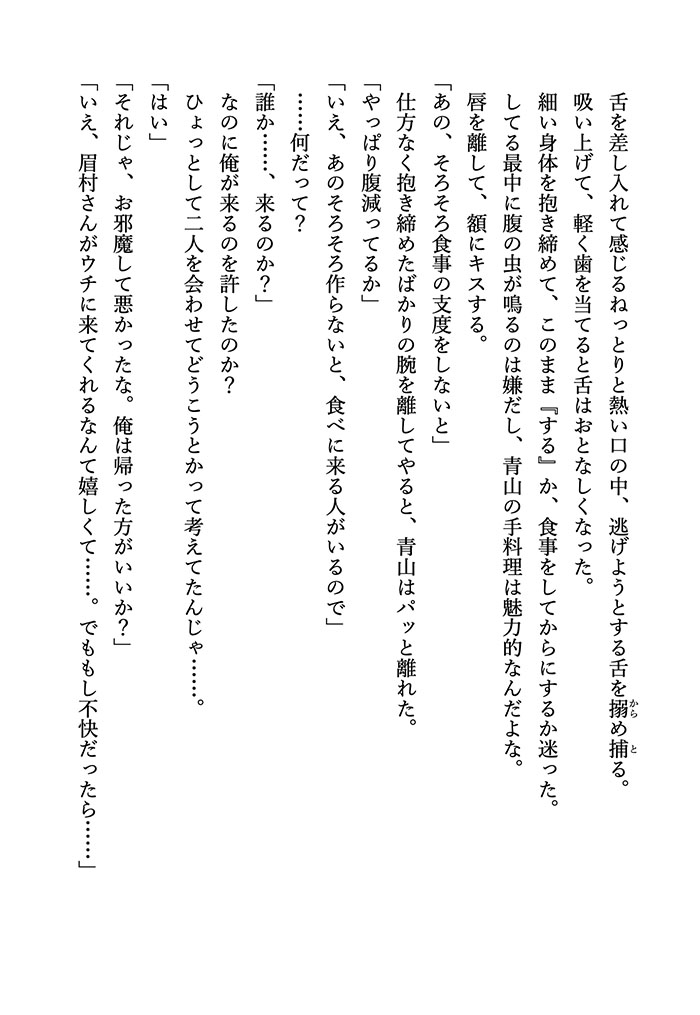 舌を差し入れて感じるねっとりと熱い口の中、逃げようとする舌を搦め捕る。
吸い上げて、軽く歯を当てると舌はおとなしくなった。
細い身体を抱き締めて、このまま『する』か、食事をしてからにするか迷った。
してる最中に腹の虫が鳴るのは嫌だし、青山の手料理は魅力的なんだよな。
唇を離して、額にキスする。
「あの、そろそろ食事の支度をしないと」
仕方なく抱き締めたばかりの腕を離してやると、青山はパッと離れた。
「やっぱり腹減ってるか」
「いえ、あのそろそろ作らないと、食べに来る人がいるので」
……何だって？
「誰か……、来るのか？」
なのに俺が来るのを許したのか？
ひょっとして二人を会わせてどうこうとかって考えてたんじゃ……。
「はい」
「それじゃ、お邪魔して悪かったな。俺は帰った方がいいか？」
「いえ、眉村さんがウチに来てくれるなんて嬉しくて……。でももし不快だったら……」